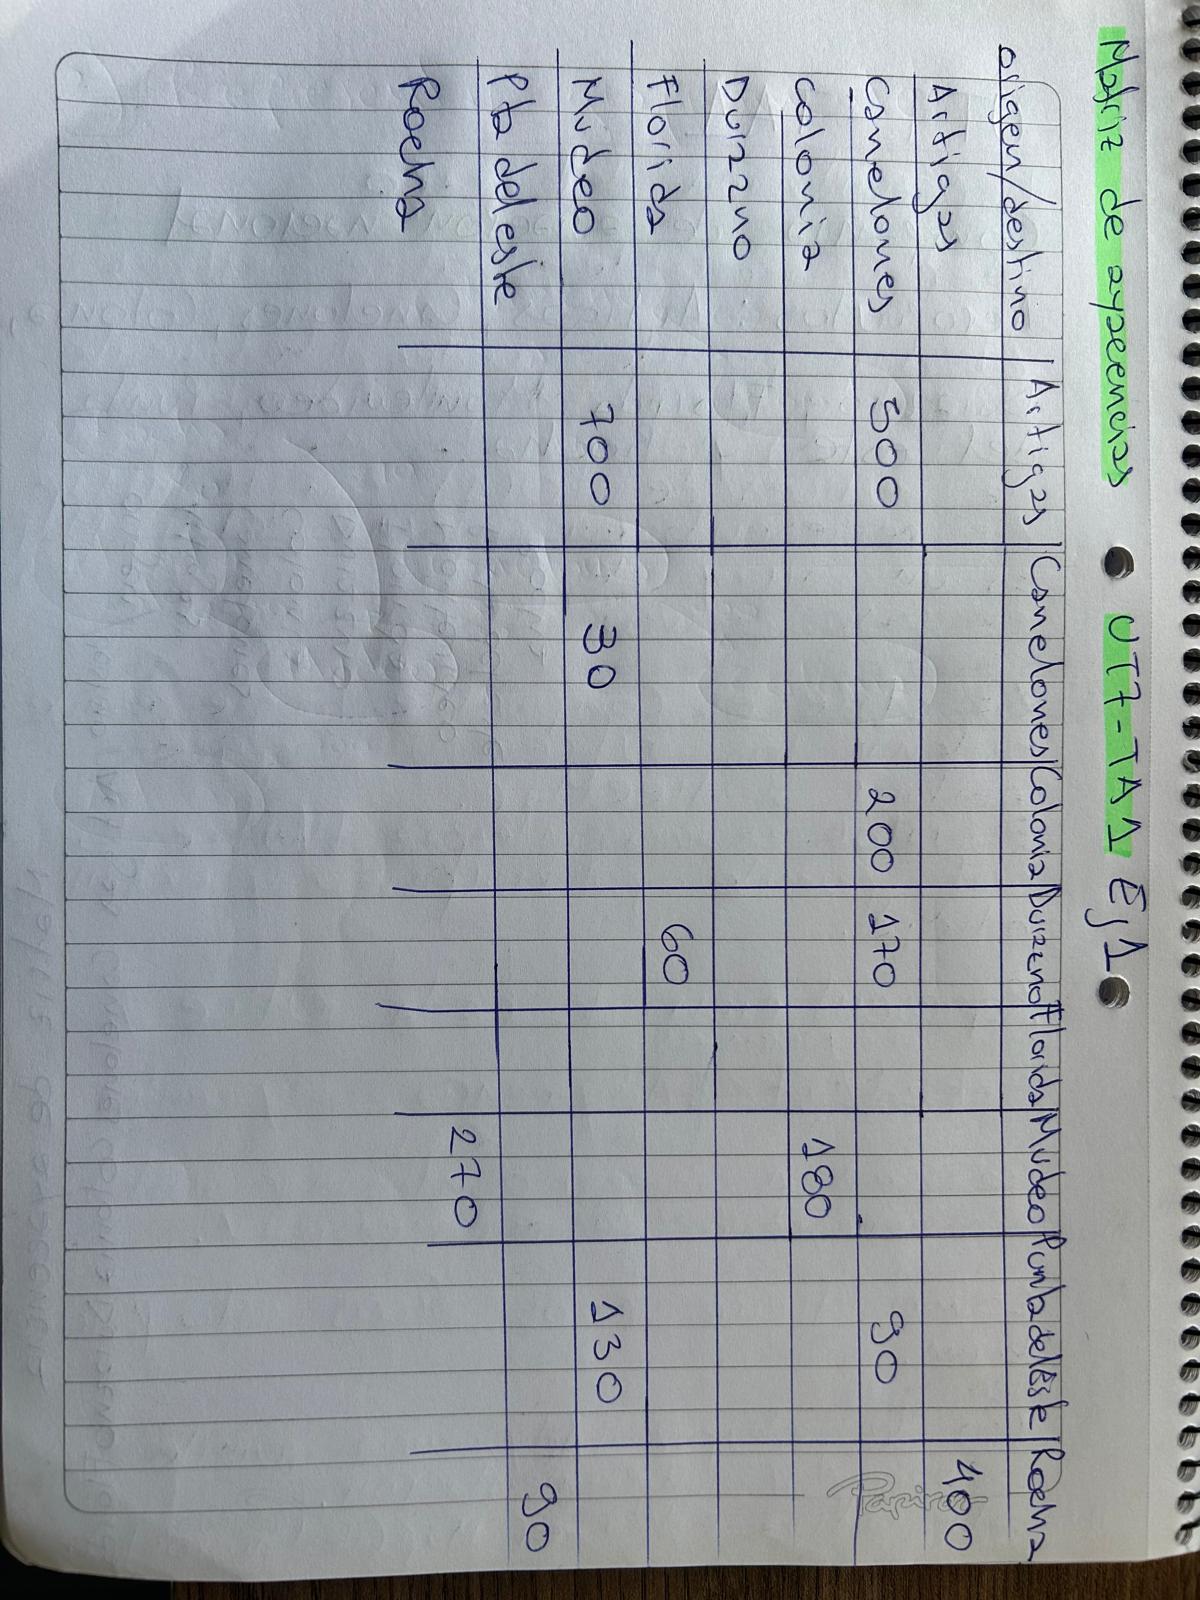 Matriz de ayacencias • UT7-TA1 Ej1 •
origen/destino | Artigas | Canelones | Colonia | Durazno | Florida | Mvdeo | Punta del Este | Rocha
Artigas 400
Canelones 500 200 170 90
Colonia 180
Durazno
Florida 60
Mvdeo 700 30 130
Pta del este 90
Rocha 270
Papiros